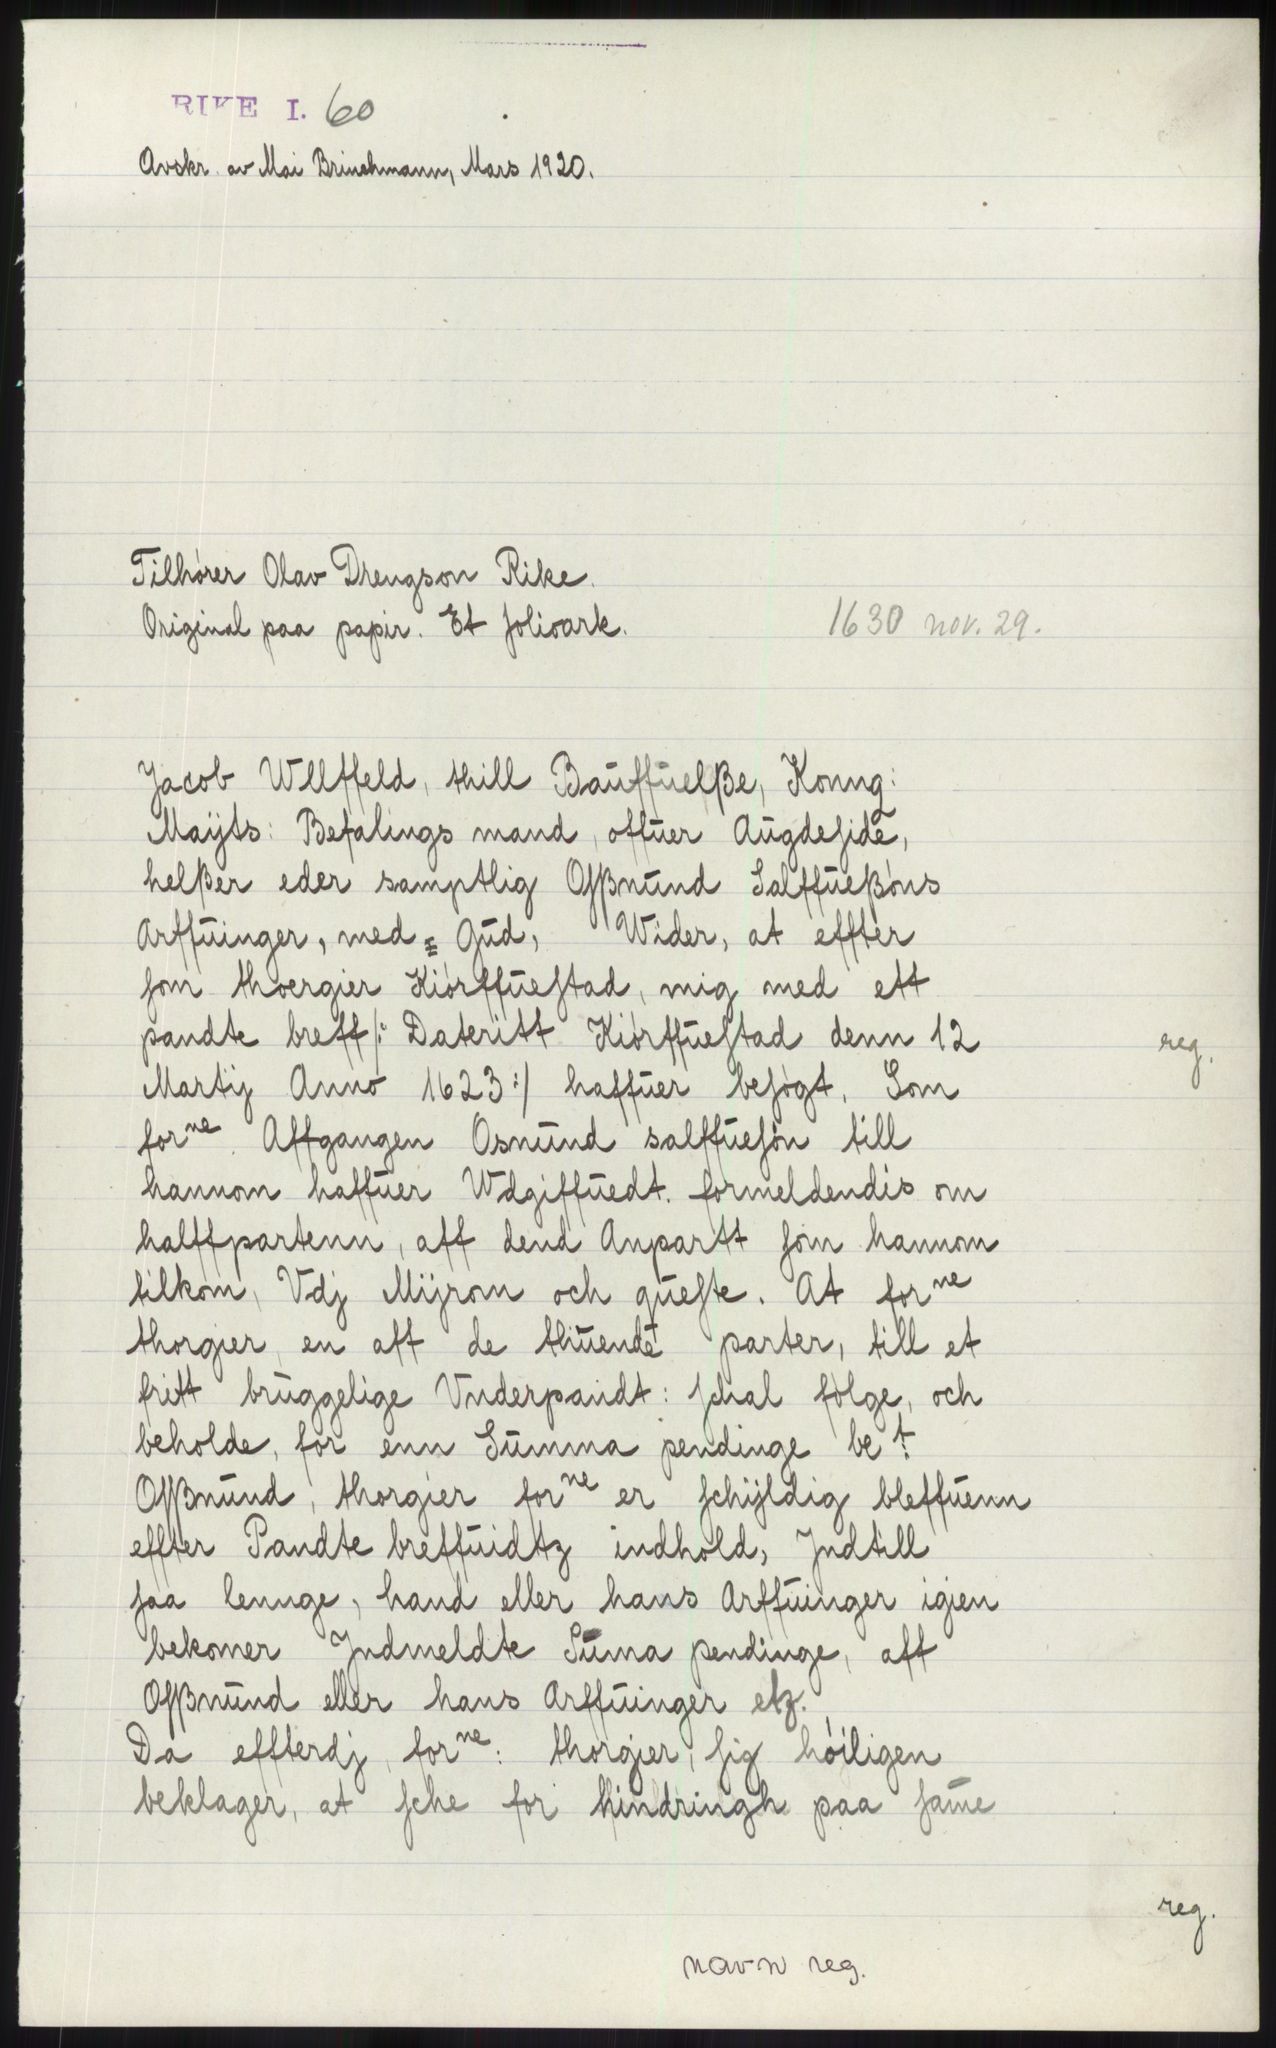 RIKE I. 60
Avskr. av Mai Brinchmann, Mars 1920.
Tilhører Olav Drengson Rike.
Original paa papir. Et folioark.
1630 nov. 29.
Jacob Wllffeld, thill Bauffuelße, Konng:
Maÿts: Befalings mand, offuer Augdeside,
helßer eder samptlig Oſßmund Salffueßóns
Arffuinger, med Gud, Wider, at effter
som thoergier Kiórffuestad, mig med ett
pandte breff /: Dateritt Kiórffuestad denn 12
reg.
Martij Anno 1623 :/ haffuer besøgt. Som
forne Affgangen Osmund salffuesøn till
hannom haffuer Wdgiffuedt. formeldendis om
halffpartenn, aff dend Anpartt som hannom
tilkom, Vdj Mÿrom och queste. At forne
thorgier, en aff de thuende parter, till et
fritt bruggelige Vnderpandt: schal følge, och
beholde, for enn Summa pendinge bet:
Oſßmund, thorgier forne er schÿldig bleffuenn
effter Pandte breffuidtz indhold, Indtill
saa lennge, hand eller hans Arffuinger igien
bekomer Indmeldte Suma pendinge, aff
Oſßmund eller hans Arffuinger etz.
Da effterdj, forne: thorgier, sig høiligen
beklager, at sche for hindringh paa same
reg.
navn reg.